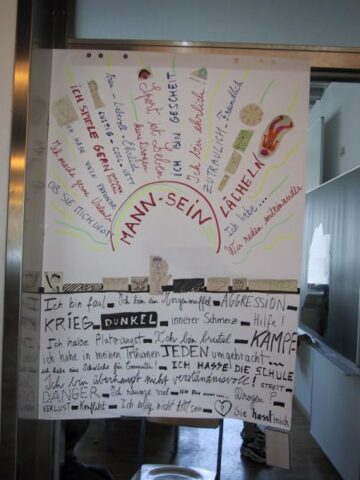 Sport ist Leben
kein Drogen
ICH BIN GESCHEIT
Ich bin ehrlich!
ZUTRAULICH - Freundlich
LÄCHELN
Ich liebe...
Wir reden miteinander
Frau - Liebevoll - Ehrlich
LUSTIG - COOL - NETT
ICH SPIELE GERN GITARRE
ICH HABE VIELE FREUNDE
Ich mache gerne
OB SIE MICH LIEBT
MANN-SEIN
Ich bin faul - Ich bin ein Morgenmuffel - AGGRESSION
KRIEG - DUNKEL - innerer Schmerz - Hilfe!
Ich habe Platzangst - Ich bin brutal - KAMPF
ich habe in meinen Träumen JEDEN umgebracht...
ich habe eine für Computer - ICH HASSE DIE SCHULE
Ich bin überhaupt nicht verständnisvoll! STREIT -
DANGER - Ich viel - - Drogen?
VERLUST - Konflikt - Ich mag nicht sein - ? Sie hasst mich